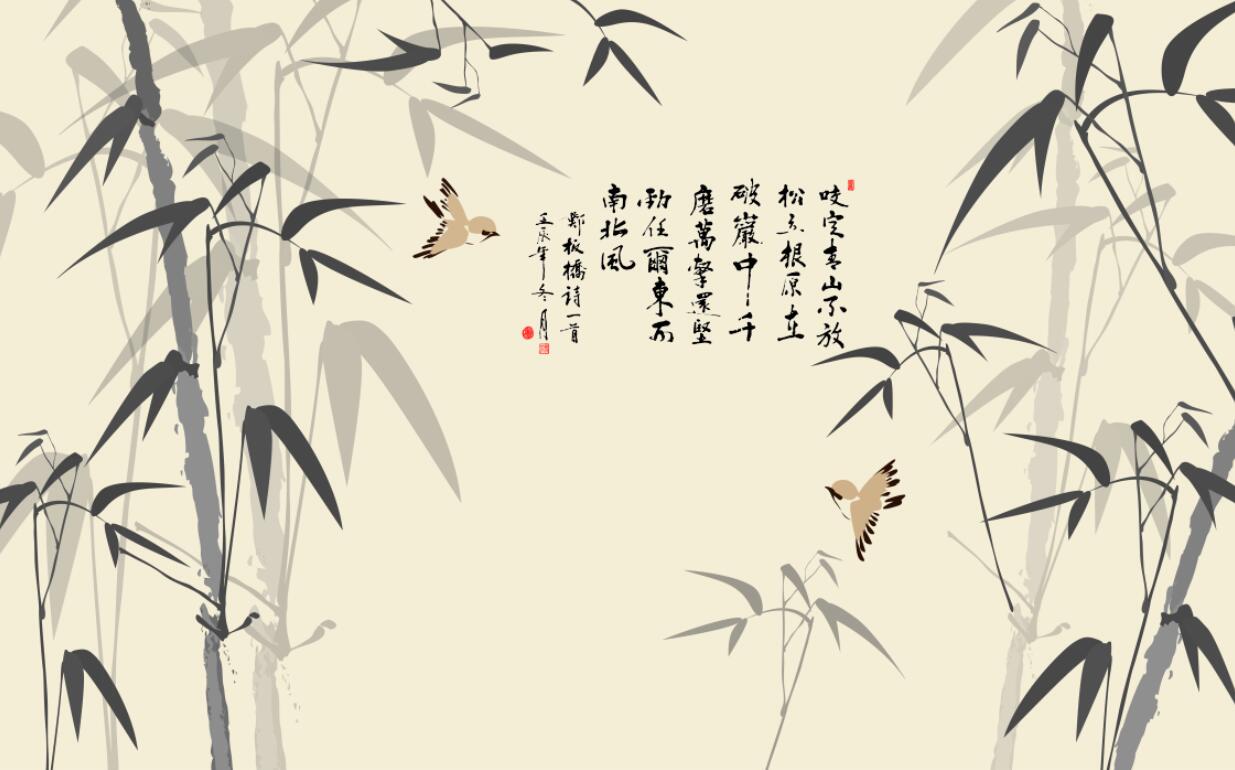 咬定青山不放
松立根原在
破巖中千
磨萬擊還堅
勁任爾東西
南北風
鄭板橋詩一首
壬辰年冬月